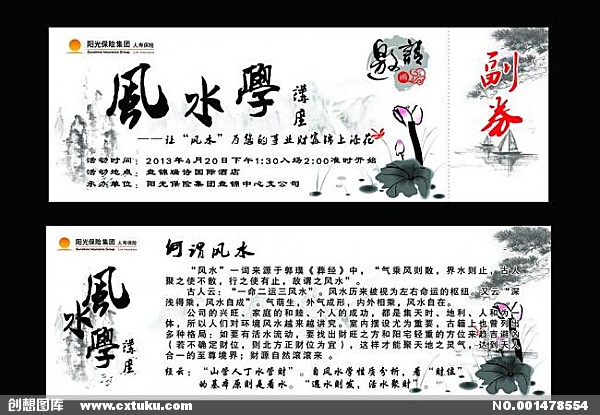 阳光保险集团 人寿保险
Sunshine Insurance Group Life Insurance
邀請
風水學 講座
副券
——让“风水”为您的事业财富锦上添花
活动时间：2013年4月20日下午1:30入场2:00准时开始
活动地点：盘锦瑞诗国际酒店
承办单位：阳光保险集团盘锦中心支公司
阳光保险集团 人寿保险
Sunshine Insurance Group
風水學 講座
何谓风水
“风水”一词来源于郭璞《葬经》中，“气乘风则散，界水则止，古人
聚之使不散，行之使有止，故谓之风水”。
古人云：“一命二运三风水”。风水历来被视为左右命运的枢纽。又云“深
浅得乘，风水自成”。气萌生，外气成形，内外相乘，风水自在。
公司的兴旺、家庭的和睦、个人的成功，都是集天时、地利、人和为一
体，所以人们对环境风水越来越讲究。室内摆设尤为重要，古籍上也曾列出
多种格局：如要有活水流动，要找出财旺之方和阳宅轻重的方位来趋吉避凶
（若不确定财位，则北方正财位为宜），这样才能聚天地之灵气，达到天人
合一的至尊境界；财源自然滚滚来。
经云：“山管人丁水管财”。自风水学性质分析，看“财位”
的基本原则是看水。“遇水则发，活水聚财”
创想图库 www.cxtuku.com
NO.001478554